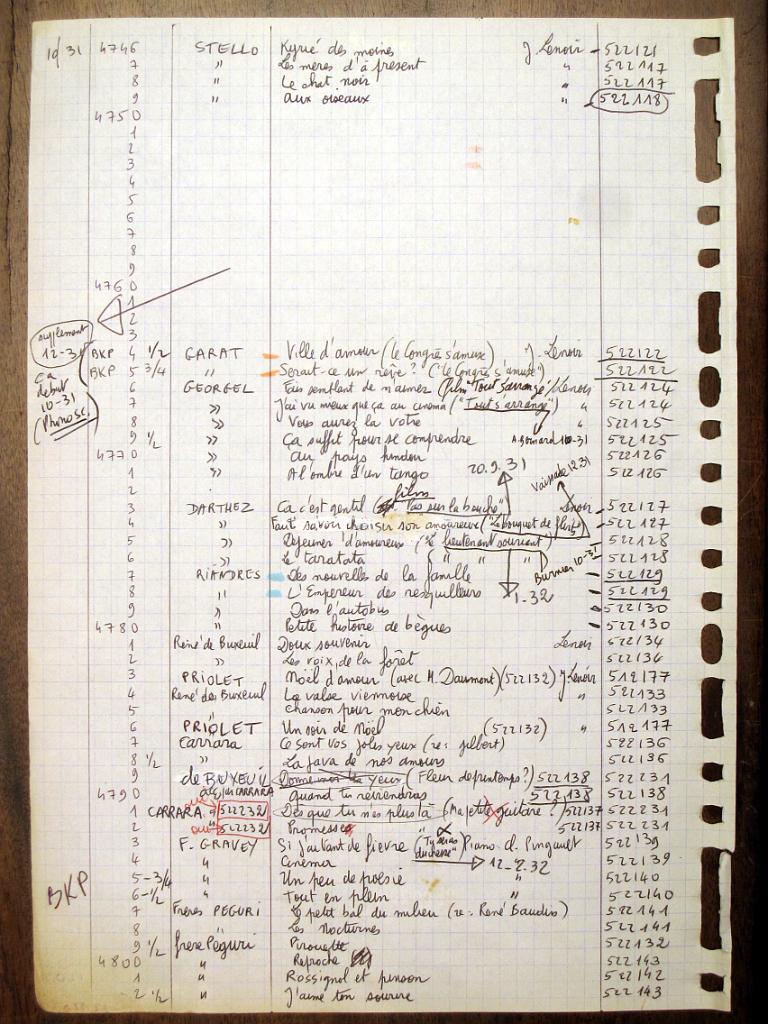 10/31 4746 STELLO Kyrié des moines J. Lenoir - 522121
7 " Les mères d'à présent " 522117
8 " Le chat noir " 522117
9 " Aux oiseaux " 522118
4750
1
2
3
4
5
6
7
8
9
4760
1
2
3
supplement 12-31
BKP 4 1/2 GARAT Ville d'amour (le Congrès s'amuse) J. Lenoir 522122
BKP 5 3/4 " Serait-ce un rêve? ("le Congrès s'amuse") 522122
ça debut 10-31 (Phonosc.)
6 GEORGEL Fais semblant de m'aimer (film "Tout s'arrange") Lenoir 522124
7 " J'ai vu mieux que ça au cinema ("Tout s'arrange") " 522124
8 " Vous aurez la votre 522125
9 1/2 " Ça suffit pour se comprendre 10-31 522125
4770 " Au pays hindou 522126
1 " A l'ombre d'un tango 20.9.31 522126
2 film 12.31
3 DARTHEZ Ca c'est gentil ("Pas sur la bouche") Lenoir - 522127
4 " Faut savoir choisir son amoureux ("Le bouquet de flirts") 522127
5 " Dejeuner d'amoureux ("Le lieutenant souriant") 522128
6 " Le taratata " " " 522128
7 RIANDRES Des nouvelles de la famille Burnier 10-31 522129
8 " L'Empereur des resquilleurs 1-32 522129
9 " Dans l'autobus 522130
4780 " Petite histoire de bègues 522130
1 René de Buxeuil Doux souvenir Lenoir 522134
2 " Les voix de la forêt 522134
3 PRIOLET Noël d'amour (avec M. Daumont) (522132) J Lenoir 519177
4 René de Buxeuil La valse viennoise " 522133
5 " Chanson pour mon chien 522133
6 PRIOLET Un soir de Noël (522132) " 519177
7 Carrara Ce sont vos jolis yeux (re: Jilbert) 522136
8 1/2 " La java de nos amours 522136
9 de BUXEUIL Donne-moi tes yeux (Fleur de printemps?) 522138 522231
4790 CARRARA quand tu reviendras 522138 522138
1 CARRARA ou 522232 Dès que tu n'es plus là (Ma petite guitare?) 522137 522231
2 " ou 522232 Promesses 522137 522231
3 F. GRAVEY Si j'avais de fièvre ("Tu seras duchesse") Piano Cl. Pingault 522139
4 " Cinéma 12-2.32 522139
5-3/4 " Un peu de poésie " 522140
BKP
6-1/2 " Tout en plein " 522140
7 Frères PEGURI Le petit bal du milieu (re: René Baudin) 522141
8 " Les Nocturnes 522141
9 1/2 frere Péguri Pirouette 522132
4800 " Reproche 522143
1 " Rossignol et pinson 522142
2 1/2 " J'aime ton sourire 522143